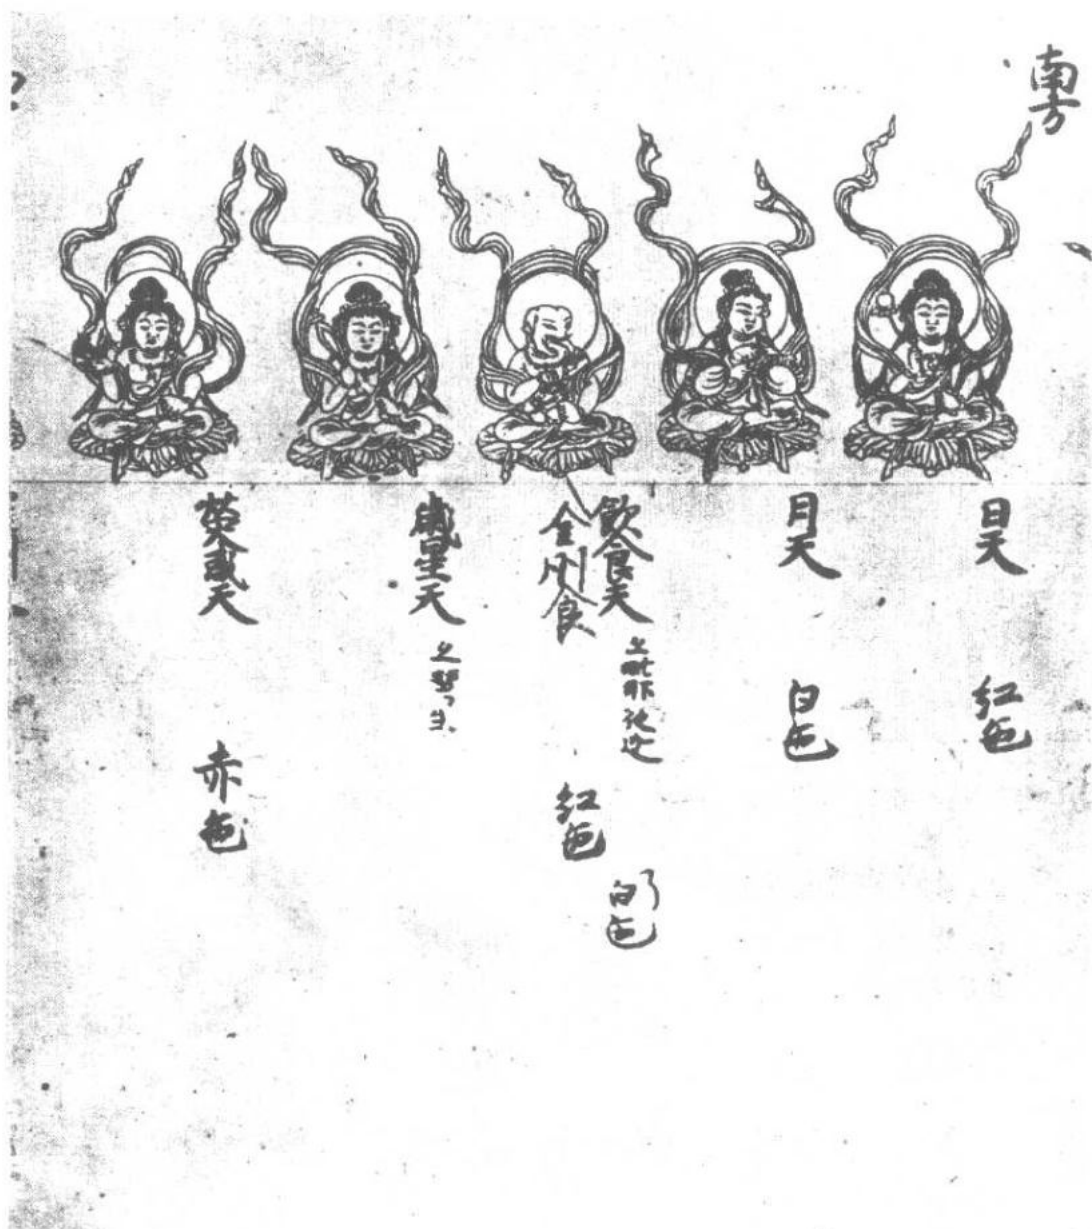 南方
日天
紅色
月天
白色
飲食天
金剛食
紅色
白色
彗星天
熒惑天
赤色